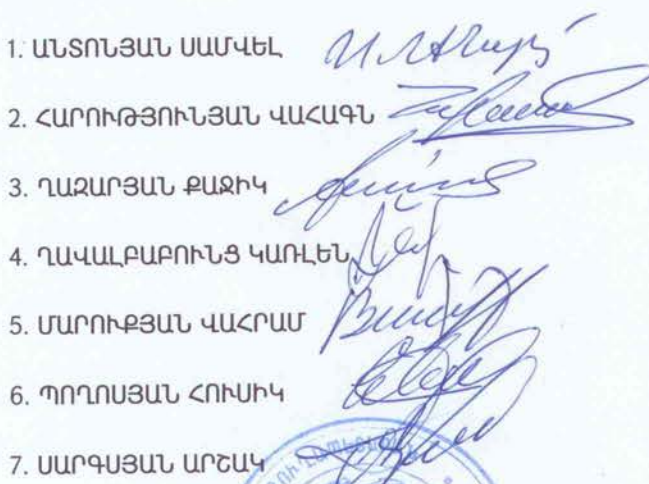 1. ԱՆՏՈՆՅԱՆ ՍԱՄՎԵԼ
2. ՀԱՐՈՒԹՅՈՒՆՅԱՆ ՎԱՀԱԳՆ
3. ՂԱԶԱՐՅԱՆ ՔԱՋԻԿ
4. ՂԱՎԱԼԲԱԲՈՒՆՑ ԿԱՌԼԵՆ
5. ՄԱՐՈՒՔՅԱՆ ՎԱՀՐԱՄ
6. ՊՈՂՈՍՅԱՆ ՀՈՒՍԻԿ
7. ՍԱՐԳՍՅԱՆ ԱՐՇԱԿ